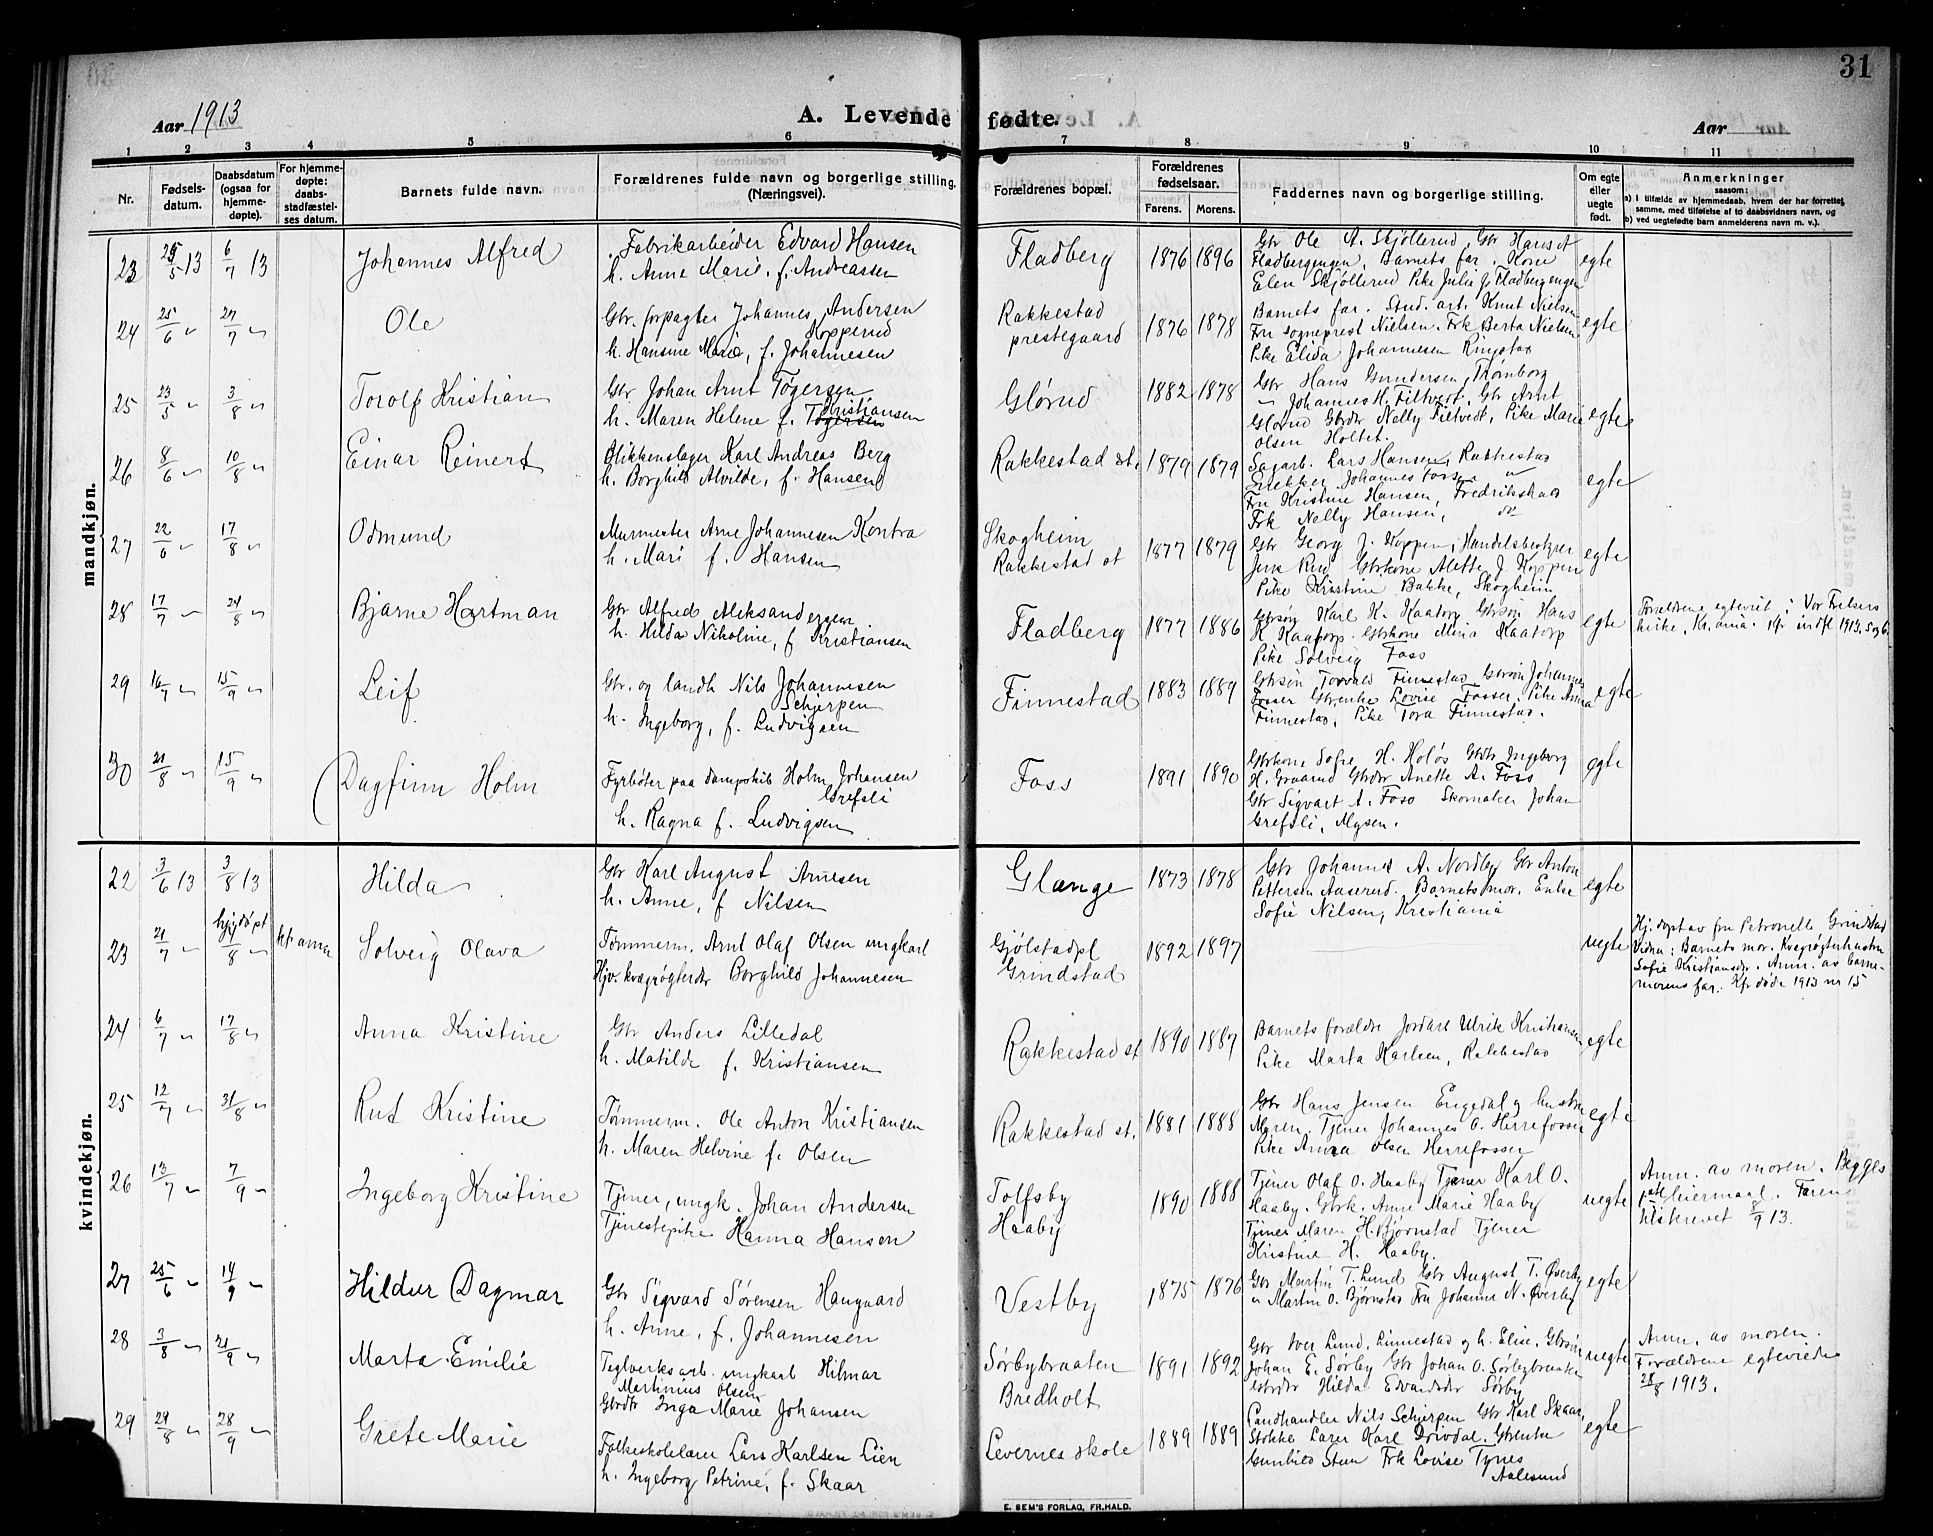 31
Aar 1913
A. Levende fødte.
Aar
1 2 3 4 5 6 7 8 9 10 11
Nr.
Fødsels-datum.
Daabsdatum (ogsaa for hjemme-døpte).
For hjemme-døpte: daabs stadfæstel-ses datum.
Barnets fulde navn.
Forældrenes fulde navn og borgerlige stilling. (Næringsvei).
Forældrenes bopæl.
Forældrenes fødselsaar.
Farens. Morens.
Faddernes navn og borgerlige stilling.
Om egte eller uegte født.
Anmerkninger
saasom:
a) i tilfælde av hjemmedaab, hvem der har forrettet samme, med tilføielse af to daabsvidners navn, og
b) ved uegtefødte barn anmelderens navn m. v.).
mandkjøn.
23 25/5 13 6/7 13 Johannes Alfred Fabrikarbeider Edvard Hansen
h. Anne Marie, f. Andreassen
Fladberg 1876 1896 Gbr Ole A. Skjøllerud, Gbr Hans A
Fladbergengen, Barnets far. Kone
Elen Skjøllerud Pike Julie J. Fladbergengen
egte
24 25/6 " 27/7 " Ole Gbr. forpagter Johannes Andersen
Kopperud
h. Hansine Marie, f. Johannesen
Rakkestad
prestegaard
1876 1878 Barnets far. Stud. art. Knut Nielsen
Fru sogneprest Nielsen. Frk Berta Nielsen
Pike Elida Johannesen Ringstad
egte
25 23/5 " 3/8 " Torolf Kristian Gbr Johan Arnt Tøgersen
h. Maren Helene f. Tøgersen Kristiansen
Glørud 1882 1878 Gbr Hans Gundersen, Thornborg
" Johannes H. Filtvedt, Gbr Arnt
Glørud Gbrdtr Nelly Filtvedt, Pike Marie
Olsen Holtet.
egte
26 8/6 " 10/8 " Einar Reinert Blikkenslager Karl Andreas Berg
h. Borghild Alvilde, f. Hansen
Rakkestad st. 1879 1879 Sagarb. Lars Hansen, Rakkestad
Snekker Johannes Fosse "
Fru Kristine Hansen, Fredrikstad
Frk Nelly Hansen, "
egte
27 22/6 " 17/8 " Odmund Murmester Arne Johannesen Kontra
h. Mari f. Hansen
Skogheim
Rakkestad st
1877 1879 Gbr Georg J. Koppen, Handelsbestyrer
Jens Rud Gbrkone Alette J. Koppen
Pike Kristine Bakke, Skogheim
egte
28 17/7 " 24/8 " Bjarne Hartman Gbr Alfred Aleksandersen
h. Hilda Nikoline, f Kristiansen
Fladberg 1877 1886 Gbrsøn Karl K. Kaatorp Gbrsøn Hans
K Kaatorp. Gbrkone Mina Kaatorp
Pike Solveig Foss
egte Forældrene egteviet i Vor Frelsers
kirke, Kr.ania. Kfr indfl 1913, 5 og 6.
29 16/7 " 15/9 " Leif Gbr. og landh Nils Johannesen
Schjerpen
h. Ingeborg, f. Ludvigsen
Finnestad 1883 1889 Gbrsøn Torvald Finnestad Gbrsøn Johannes
Fosser Gbrenke Lovise Fosser, Pike Anna
Finnestad, Pike Tora Finnestad.
egte
30 21/8 " 15/9 " Dagfinn Holm Fyrbøter paa dampskib Holm Johansen
Grefsli
h. Ragna f. Ludvigsen
Foss 1891 1890 Gbrkone Sofie H. Holøs Gbrdtr Ingeborg
H. Graarud Gbrdtr Anette A. Foss
Gbr Sigvart A. Foss Skomaker Johan
Grefsli, Mysen.
egte
kvindekjøn.
22 3/6 13 3/8 13 Hilda Gbr Karl August Arnesen
h. Anne, f Nilsen
Glenge 1873 1878 Gbr Johannes A. Nordby Gbr Anton
Pettersen Aaserud. Barnets mor. Enke
Sofie Nilsen, Kristiania
egte
23 21/7 " hjdøpt /8 " Solveig Olava Tømmerm. Arnt Olaf Olsen ungkarl
Hjv. kvægrøgterdtr Borghild Johannesen
Gjølstadpl
Grindstad
1892 1897 uegte Hj.døpt av fru Petronelle Grindstad
Vidna: Barnets mor. Kvegrøgterhustru
Sofie Kristiansdr. Anm. av barne-
morens far. Kfr døde 1913 nr 15
24 6/7 " 17/8 " Anna Kristine Gbr Anders Lilledal
h. Matilde f. Kristiansen
Rakkestad st 1890 1887 Barnets forældre Jordarb Ulrik Kristiansen
Pike Marta Karlsen, Rakkestad
egte
25 12/7 " 31/8 " Rut Kristine Tømmerm. Ole Anton Kristiansen
h. Maren Helvine f. Olsen
Rakkestad st. 1881 1888 Gbr Hans Jensen Engedal og hustru
Maren. Tjener Johannes O. Herrefosser
Pike Anna Olsen Herrefosser
egte
26 13/7 " 7/9 " Ingeborg Kristine Tjener, ungk. Johan Andersen
Tjenestepike Hanna Hansen
Tolfsby
Haaby
1890 1888 Tjener Olaf O. Haaby Tjener Karl O.
Haaby. Gbrk. Anne Marie Haaby
Tjener Maren H. Bjørnstad Tjener
Kristine H. Haaby.
uegte Anm. av moren. Begges
1ste leiermaal. Faren
tilskrevet 8/9 13.
27 25/6 " 14/9 " Hildur Dagmar Gbr Sigvard Sørensen Haugaard
h. Anne, f. Johannesen
Vestby 1875 1876 Gbr Martin T. Lund Gbr August T. Øverby
" Martin O. Bjørnstad Fru Johanne N. Øverby
egte
28 3/8 " 21/9 " Marta Emilie Teglverksarb. ungkarl Hilmar
Martinius Olsen
Gbrdtr Inga Marie Johansen
Sørbybraaten
Bredholt
1891 1892 Gbr Iver Lund, Linnestad og h. Elise. Gbrsøn
Johan E. Sørby Gbr Johan O. Sørbybraaten
Gbrdtr Hilda Edvardsdtr Sørby
uegte Anm. av moren.
Forældrene egteviede
28/8 1913.
29 29/8 " 28/9 " Grete Marie Folkeskolelærer Lars Karlsen Lien
h. Ingeborg Petrine, f. Skaar
Levernes skole 1889 1889 Landhandler Nils Schjerpen Gbr Karl Skaar,
Stokke Lærer Karl Drivdal. Gbrenke
Gunhild Steen Frk Lovise Tynes
Aalesund
egte
E. SEM'S FORLAG, FR.HALD.